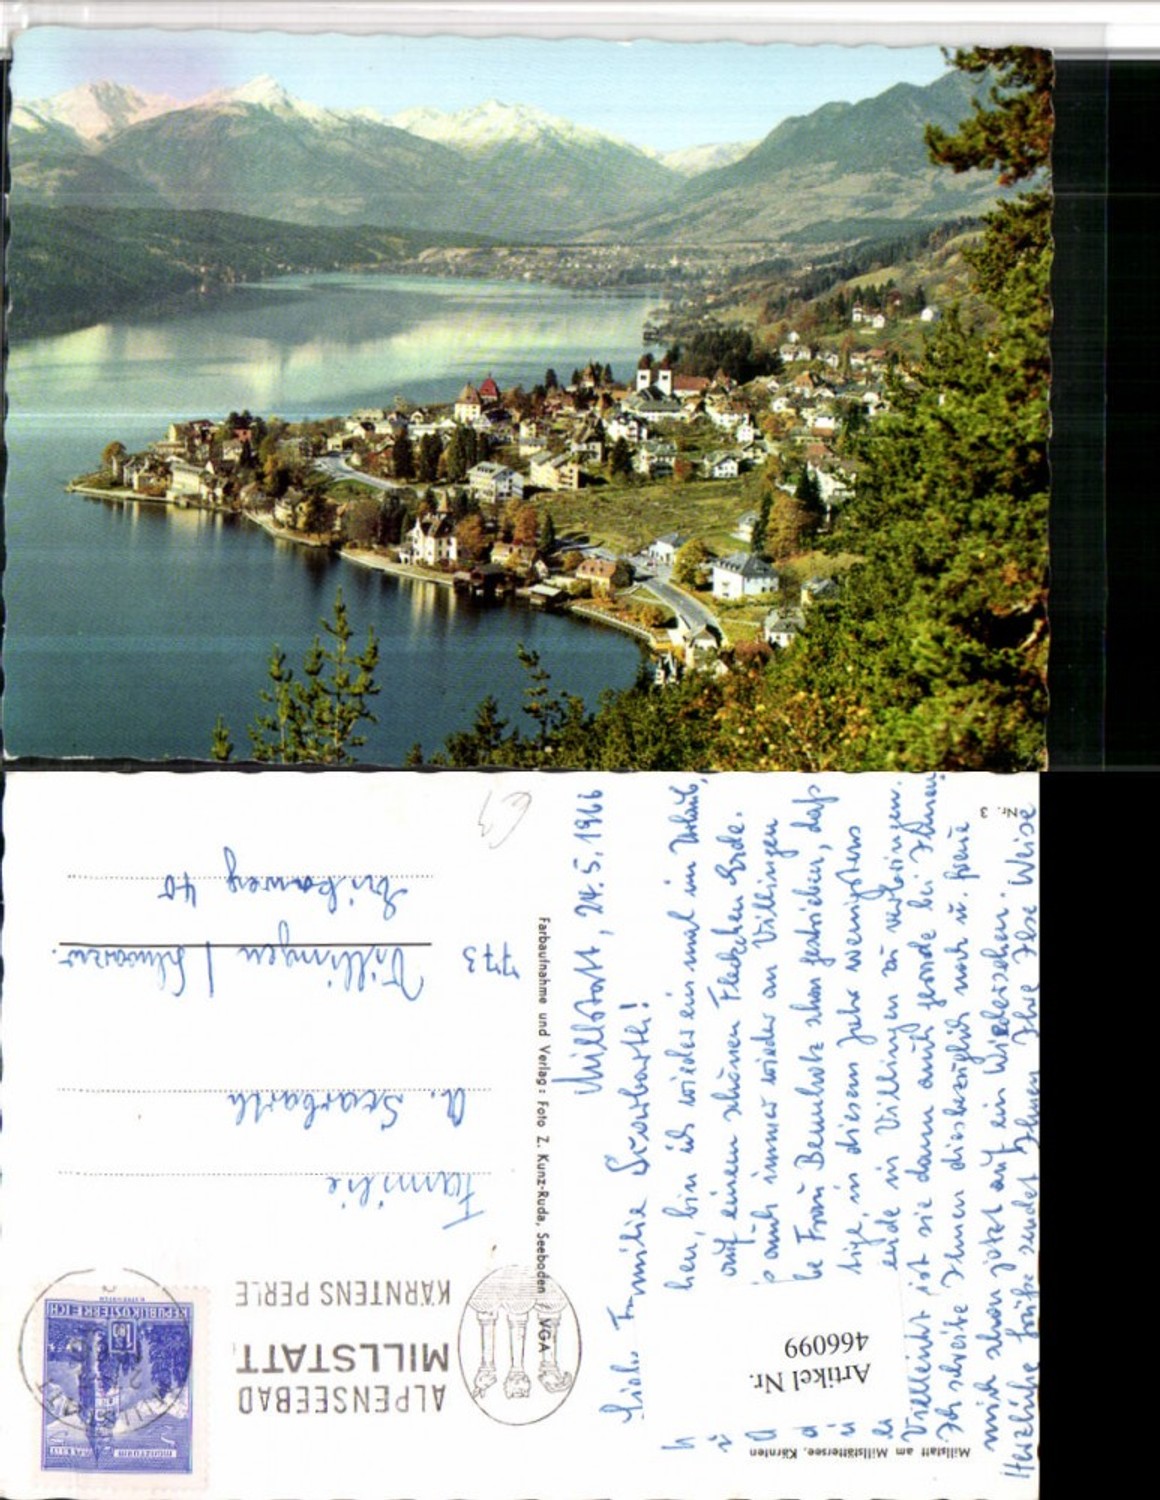 Nr. 3
Millstatt am Millstättersee, Kärnten
Millstatt, 24.5.1966
Liebe Familie Scarbarth!
hen, bin ich wieder ein mal im Urlaub,
auf einem schönen Fleckchen Erde.
auch immer wieder an Villingen
be Frau Beneholz schon geschrieben, daß
sige, in diesem Jahr wenigstens
ende in Villingen zu verbringen.
Vielleicht ist sie dann auch gerade bei Ihnen.
Ich schreibe Ihnen diesbezüglich noch u. freue
mich schon jetzt auf ein Wiedersehen.
Herzliche Grüße sendet Ihnen Ihre Ilse Weise
Artikel Nr.
466099
Farbaufnahme und Verlag: Foto Z. Kunz-Ruda, Seeboden
VGA
ALPENSEEBAD
MILLSTATT
KÄRNTENS PERLE
REPUBLIK ÖSTERREICH
1.80
MÜNZTURM
MILLSTATT
Familie
A. Scarbarth
773 Villingen / Schwarzw.
40